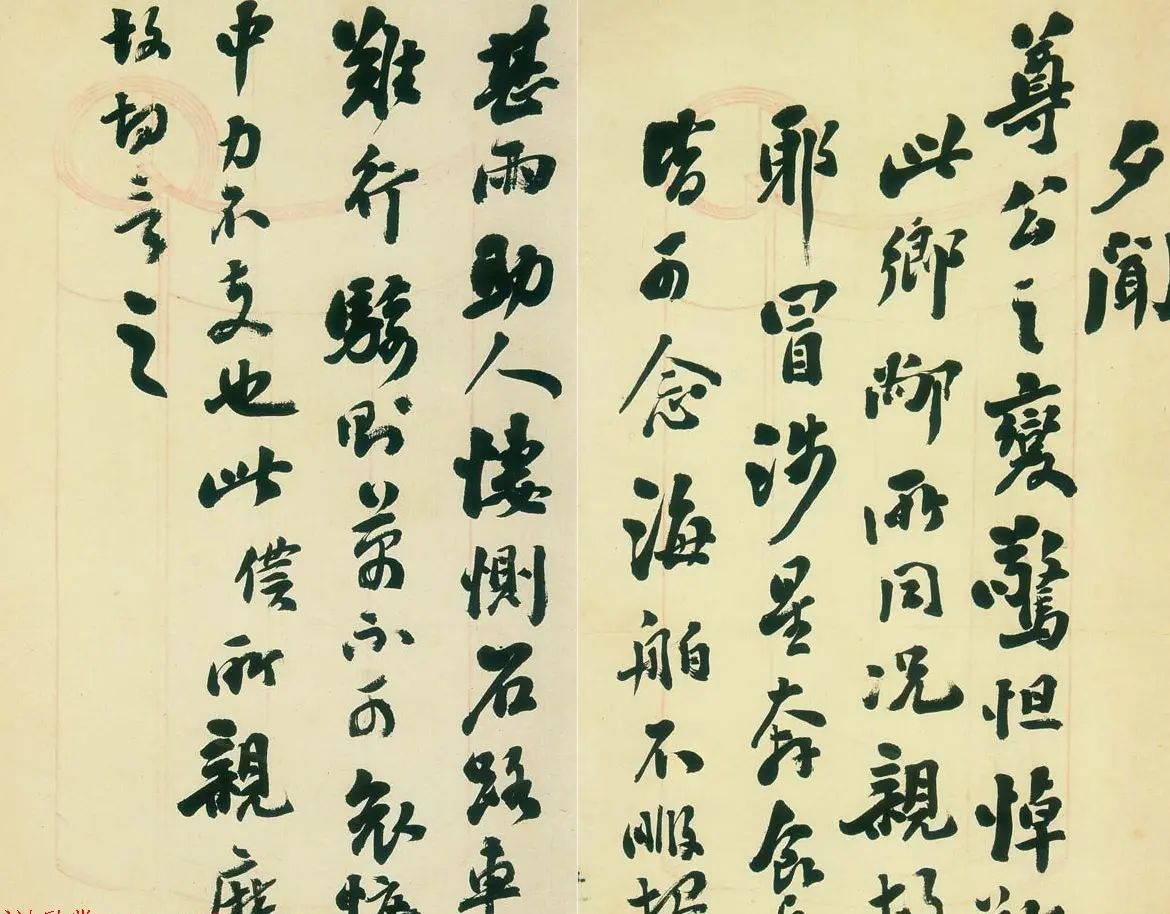 夕聞
尊公之變驚怛悼
此鄉鄰所同況親
耶冒涉星奔食
皆可念海舶不暇
甚雨助人悽惻石路車
難行騎則萬不可哀
中力不支也此僕所親歷
故切言之